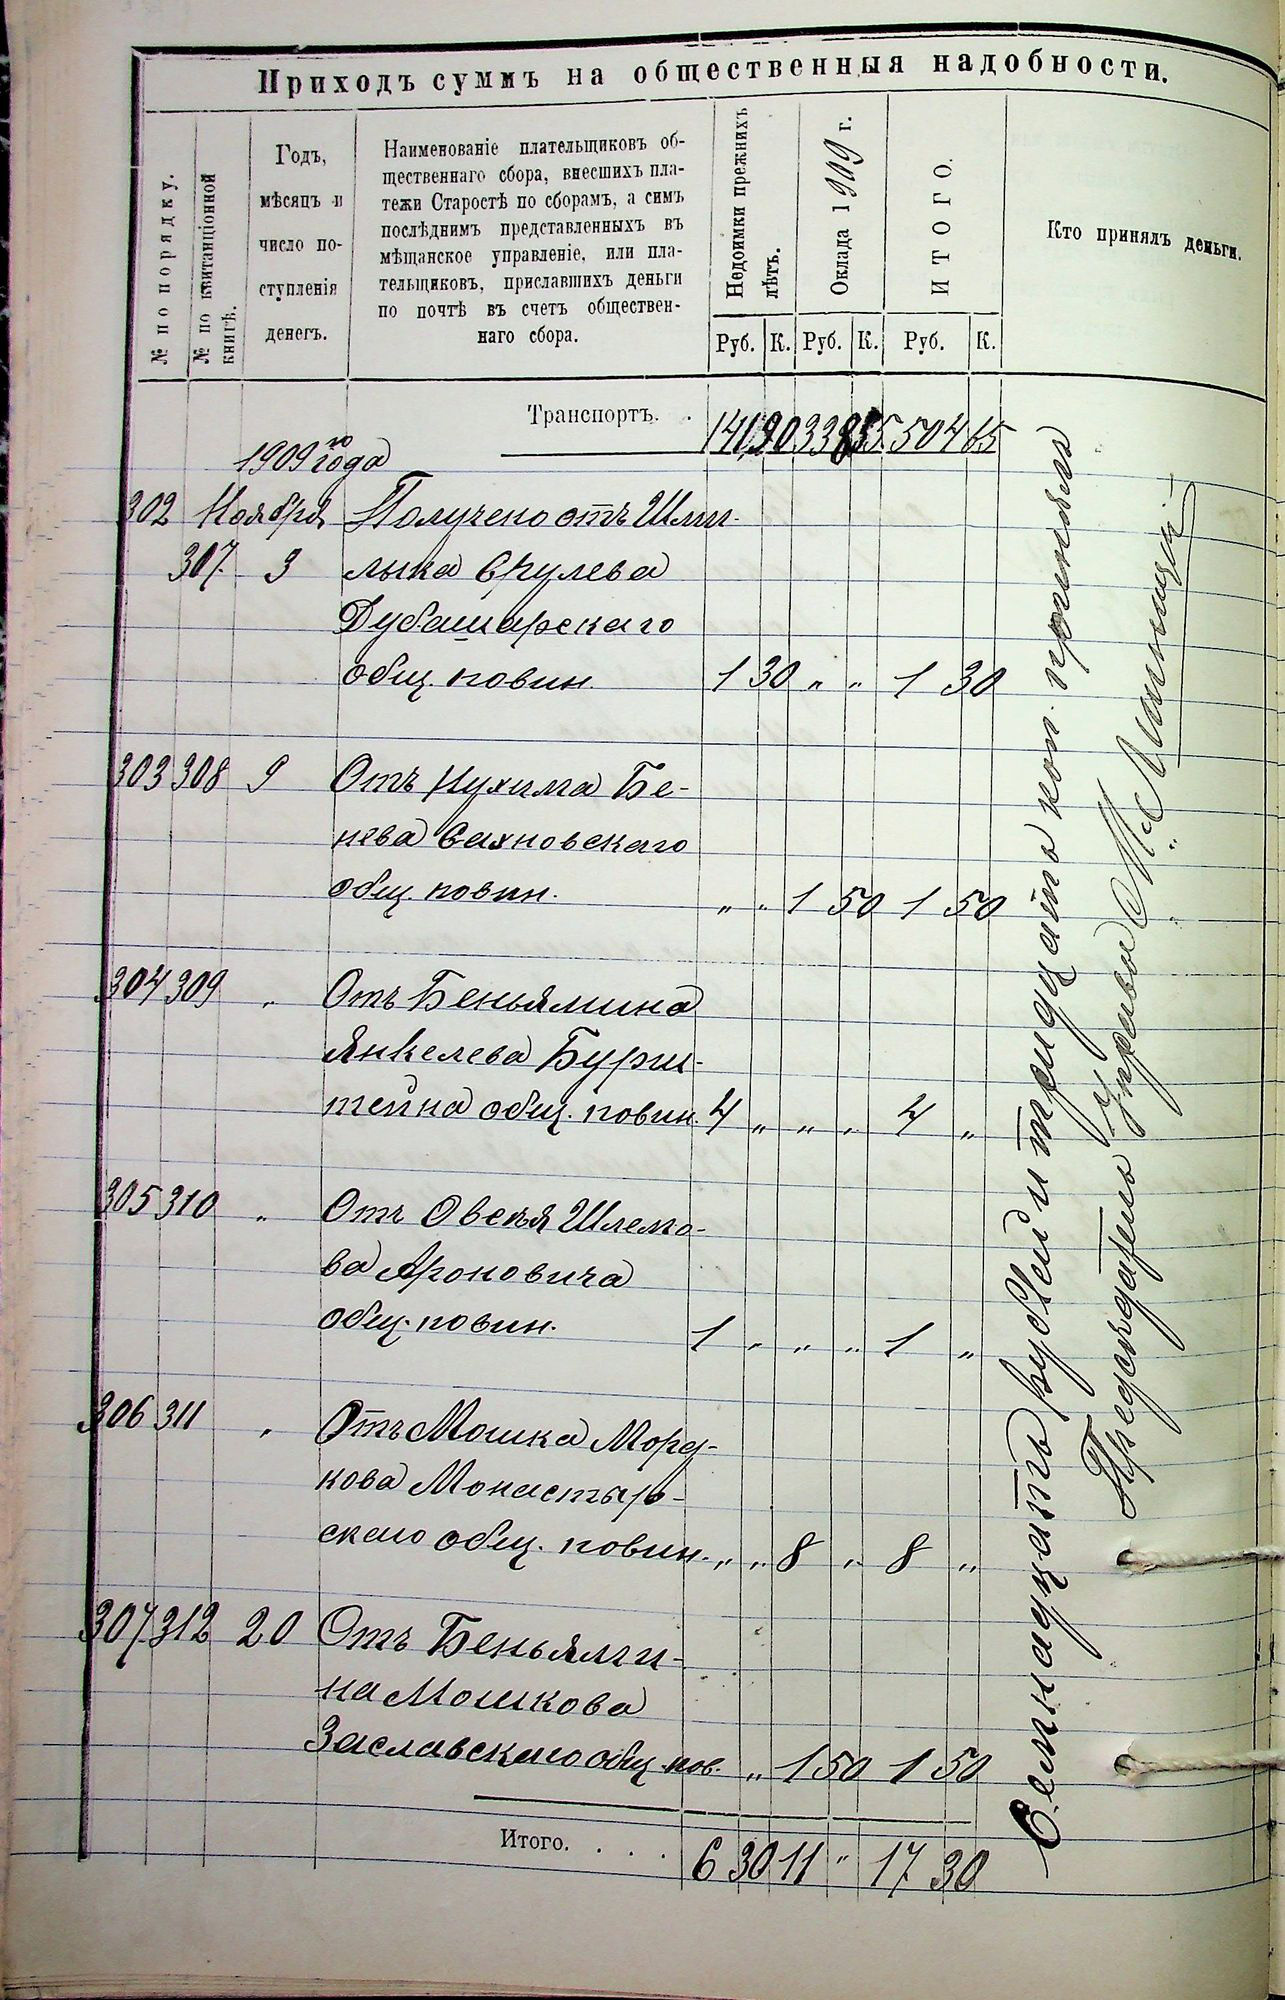 Приходъ суммъ на общественныя надобности.
№ по порядку.
№ по квитанціонной
книгѣ.
Годъ,
мѣсяцъ и
число по-
ступленія
денегъ.
Наименованіе плательщиковъ об-
щественнаго сбора, внесшихъ пла-
тежи Старостѣ по сборамъ, а симъ
послѣднимъ представленныхъ въ
мѣщанское управленіе, или пла-
тельщиковъ, приславшихъ деньги
по почтѣ въ счетъ обществен-
наго сбора.
Недоимки прежнихъ
лѣтъ.
Оклада 1909 г.
ИТОГО.
Кто принялъ деньги.
Руб. К. Руб. К. Руб. К.
Транспортъ. . 141 90 338 504 65
1909го года
302 Ноября Получено отъ Шми-
307 3 лыка Сrулева
Дубашарскаго
общ. повин. 1 30 „ „ 1 30
303 308 9 Отъ Нухима Бе-
нева Сахновскаго
общ. повин. „ „ 1 50 1 50
304 309 „ Отъ Беньямина
Янкелева Бурш-
тейна общ. повин. 4 „ „ „ 4 „
305 310 „ Отъ Овсея Шлемо-
ва Ароновича
общ. повин. 1 „ „ „ 1 „
306 311 „ Отъ Мошка Морд-
кова Монастыр-
скаго общ. повин. „ „ 8 „ 8 „
307 312 20 Отъ Беньями-
на Мошкова
Заславскаго общ. пов. „ 1 50 1 50
Итого. . . . . 6 30 11 „ 17 30
Семнадцать рублей и тридцать коп. принялъ
Председатель Управы М.